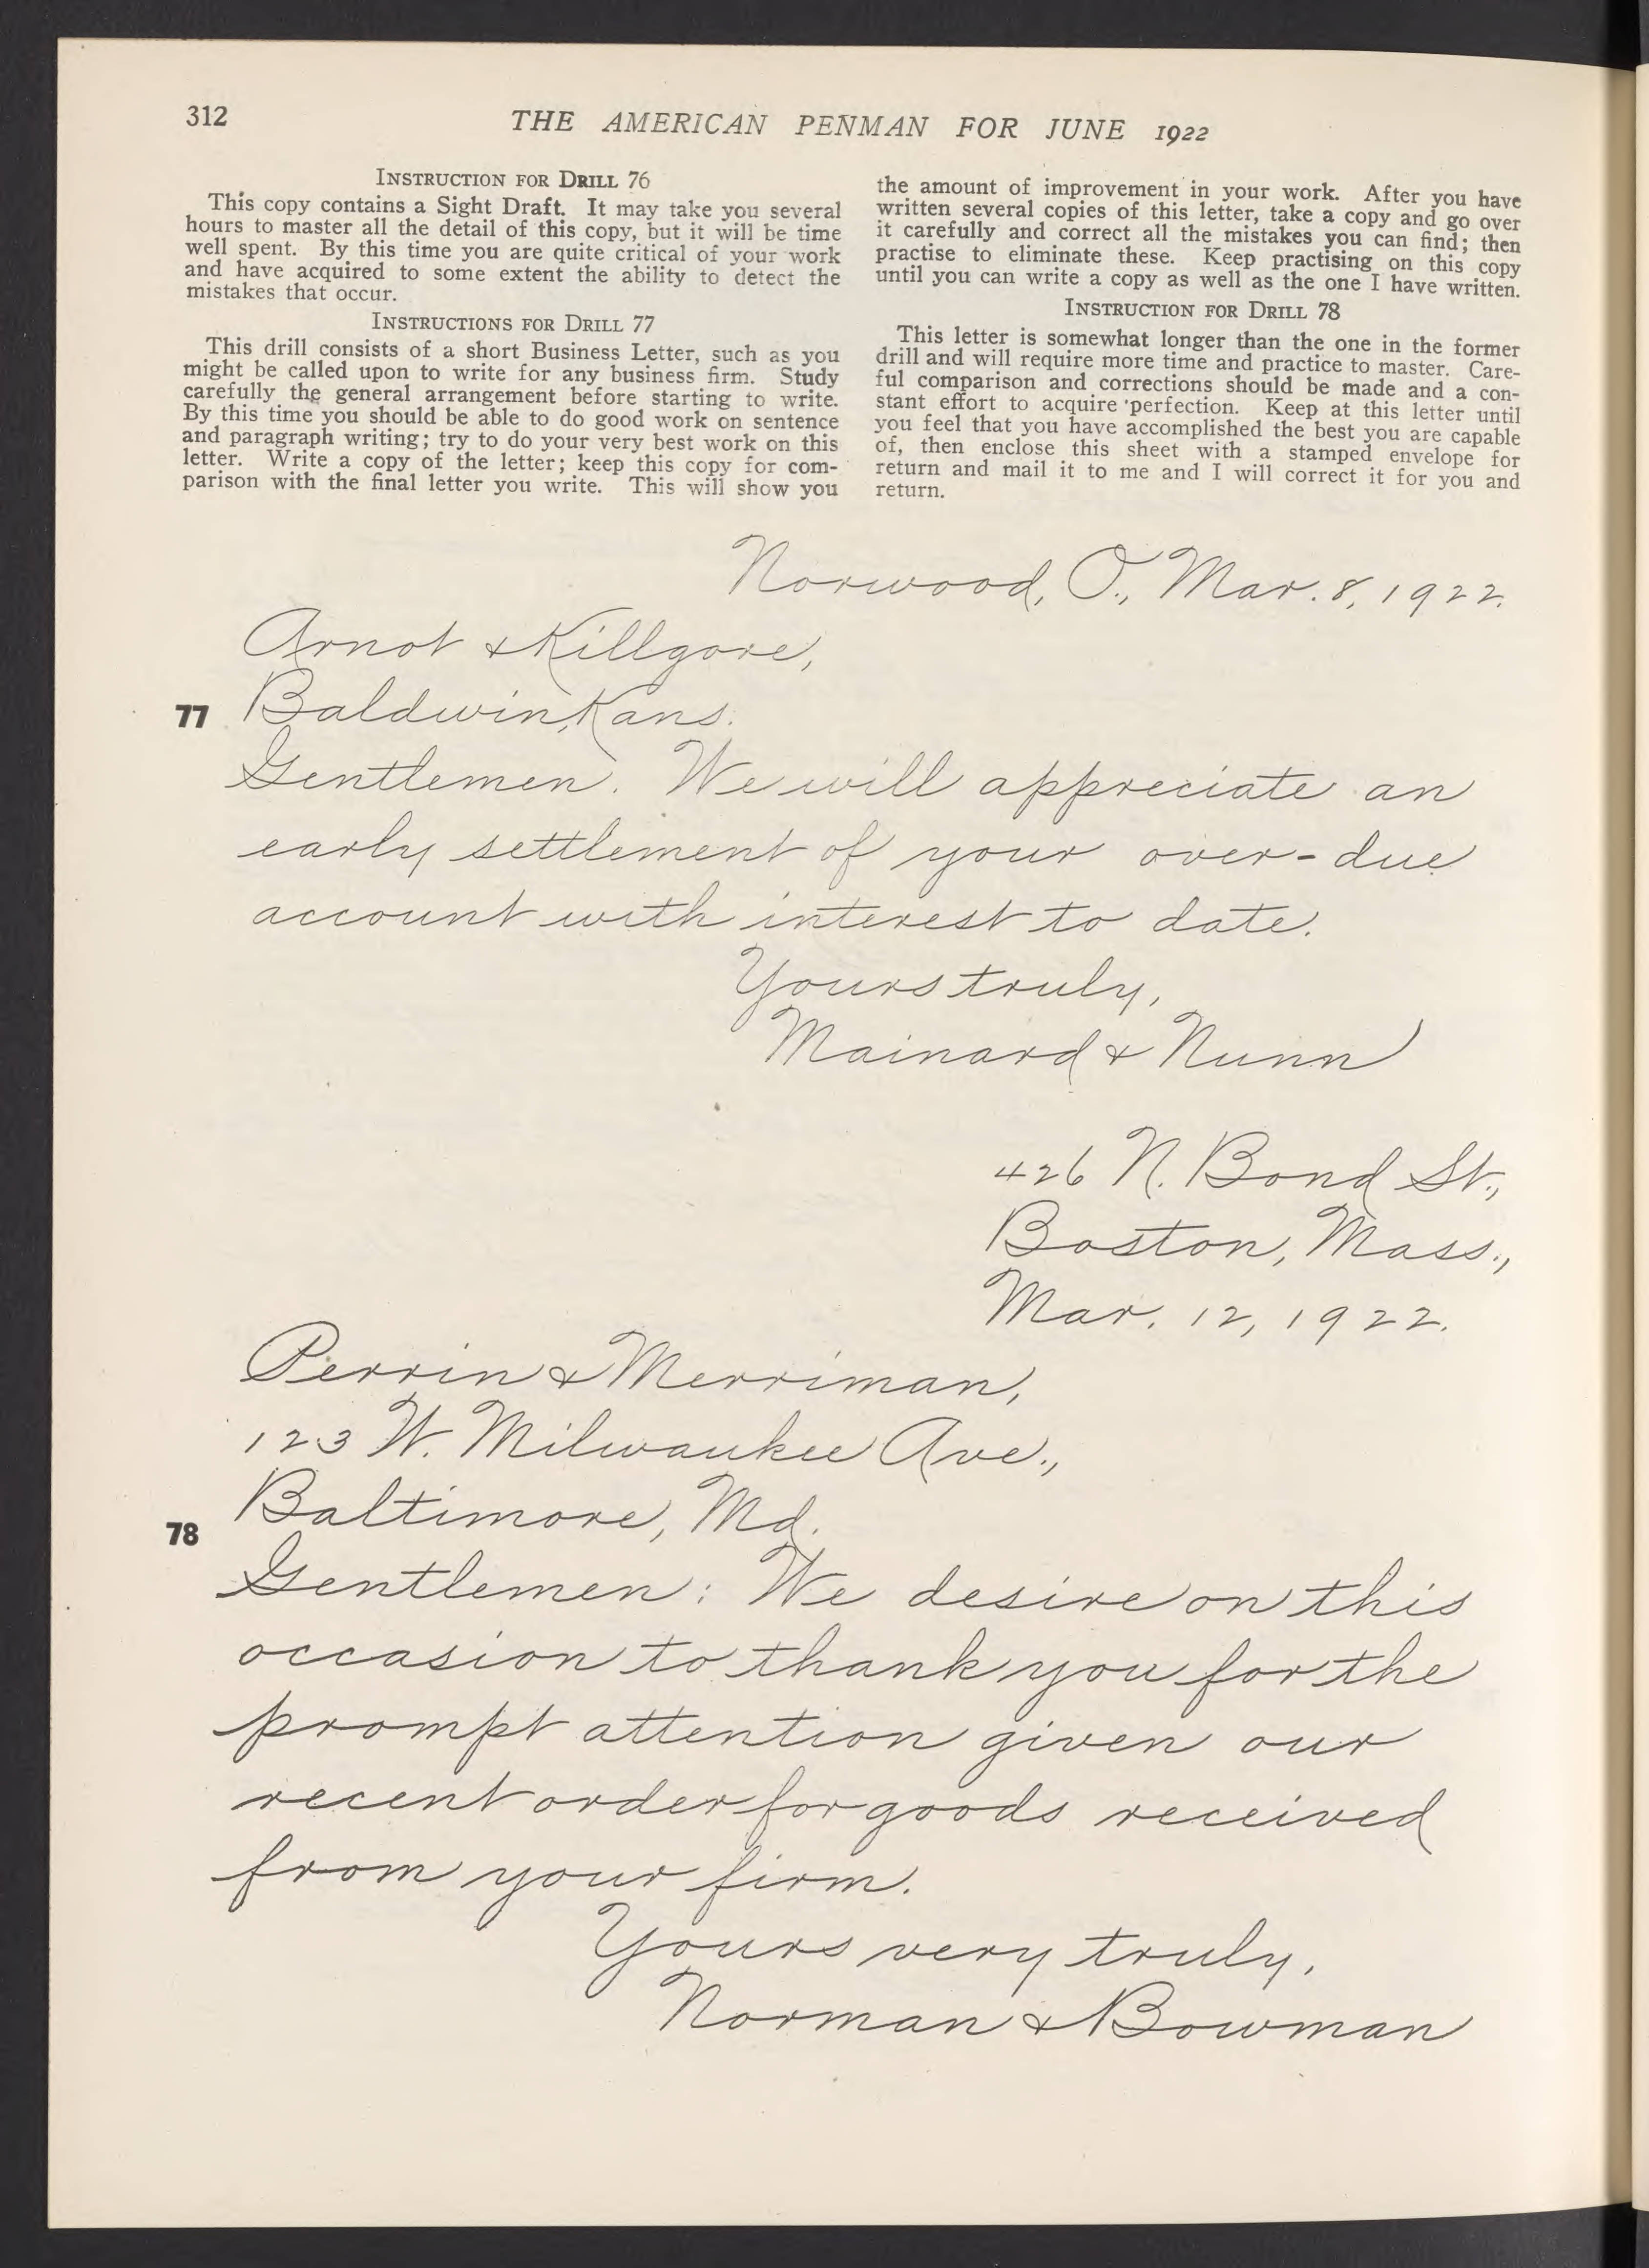 312
THE AMERICAN PENMAN FOR JUNE 1922
INSTRUCTION FOR DRILL 76
This copy contains a Sight Draft. It may take you several
hours to master all the detail of this copy, but it will be time
well spent. By this time you are quite critical of your work
and have acquired to some extent the ability to detect the
mistakes that occur.
INSTRUCTIONS FOR DRILL 77
This drill consists of a short Business Letter, such as you
might be called upon to write for any business firm. Study
carefully the general arrangement before starting to write.
By this time you should be able to do good work on sentence
and paragraph writing; try to do your very best work on this
letter. Write a copy of the letter; keep this copy for com-
parison with the final letter you write. This will show you
the amount of improvement in your work. After you have
written several copies of this letter, take a copy and go over
it carefully and correct all the mistakes you can find; then
practise to eliminate these. Keep practising on this copy
until you can write a copy as well as the one I have written.
INSTRUCTION FOR DRILL 78
This letter is somewhat longer than the one in the former
drill and will require more time and practice to master. Care-
ful comparison and corrections should be made and a con-
stant effort to acquire perfection. Keep at this letter until
you feel that you have accomplished the best you are capable
of, then enclose this sheet with a stamped envelope for
return and mail it to me and I will correct it for you and
return.
Norwood, O., Mar. 8, 1922.
Arnot & Killgore,
77 Baldwin, Kans.
Gentlemen. We will appreciate an
early settlement of your over-due
account with interest to date.
Yours truly,
Mainard & Nunn
426 N. Bond St.,
Boston, Mass.,
Mar. 12, 1922.
Perrin & Merriman,
123 W. Milwaukee Ave.,
Baltimore, Md.
78
Gentlemen: We desire on this
occasion to thank you for the
prompt attention given our
recent order for goods received
from your firm.
Yours very truly,
Norman & Bowman